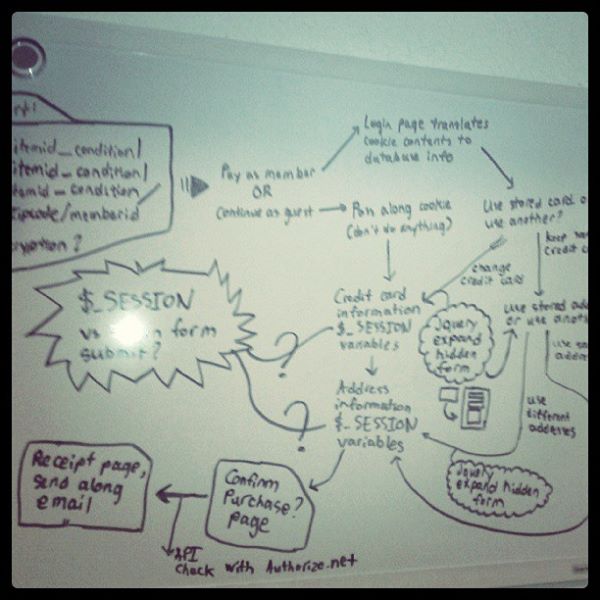 itemid_condition/
itemid_condition/
itemid_condition
zipcode/memberid
Pay as member
OR
Continue as guest
Login page translates
cookie contents to
database info
Pass along cookie
(don't do anything)
Use stored card
use another?
change
credit card
keep
credit
Credit card
information
$_SESSION
variables
Jquery
expand
hidden
form
use stored
or use
use
use
different
addresses
$_SESSION
vs form
submit?
?
?
Address
information
$_SESSION
variables
Jquery
expand hidden
form
Receipt page,
send along
email
Confirm
Purchase?
page
API
check with Authorize.net